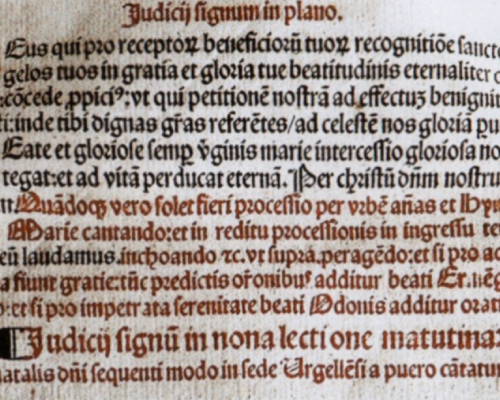 Judicij signum in plano.
Eus qui pro receptoꝝ beneficiorũ tuoꝝ recognitiõe sancto
gelos tuos in gratia et gloria tue beatitudinis eternaliter c
:cõcede ꝓpiciꝰ:vt qui petitionẽ nostrã ad effectuꝫ benignit
ti:inde tibi dignas gr̃as referẽtes/ad celestẽ nos gloriã pu
Eate et gloriose semꝑ ṽginis marie intercessio gloriosa no
tegat:et ad vitã perducat eternã. Per christũ dñm nostru
Quãdoqꝫ vero solet fieri processio per vrbẽ añas et Hym
Marie cantando:et in reditu processionis in ingressu te
eũ laudamus.inchoando ⁊c.vt supra.peragẽdo:et si pro ac
a fiunt gratie:tũc predictis or̃onibꝰ additur beati Er.
o:et si pro impetrata serenitate beati Odonis additur orat
Judicij signũ in nona lectione matutinaꝝ
natalis dñi sequenti modo in sede Urgellẽsi a puero cãtatur